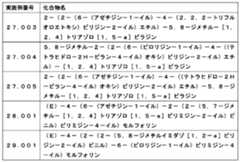 実施例番号 化合物名
27.003 2-(2-(6-(アゼチジン-1-イル)-4-(2,2,2-トリフル
オロエトキシ)ピリミジン-2-イル)エチル)-5,8-ジメチル-[1,
2,4]トリアゾロ[1,5-a]ピラジン
27.004 5,8-ジメチル-2-(2-(6-(ピロリジン-1-イル)-4-((テ
トラヒドロ-2H-ピラン-4-イル)オキシ)ピリミジン-2-イル)エチ
ル)-[1,2,4]トリアゾロ[1,5-a]ピラジン
27.005 2-(2-(6-(アゼチジン-1-イル)-4-((テトラヒドロ-2H
-ピラン-4-イル)オキシ)ピリミジン-2-イル)エチル)-5,8-ジメ
チル-[1,2,4]トリアゾロ[1,5-a]ピラジン
28.001 (E)-4-(6-(アゼチジン-1-イル)-2-(2-(5,7-ジメチ
ル-[1,2,4]トリアゾロ[1,5-a]ピリミジン-2-イル)ビ
ニル)ピリミジン-4-イル)モルフォリン
29.001 (E)-4-(2-(2-(5,8-ジメチルイミダゾ[1,2-a]ピラ
ジン-2-イル)ビニル)-6-(ピロリジン-1-イル)ピリミジン-4-
イル)モルフォリン